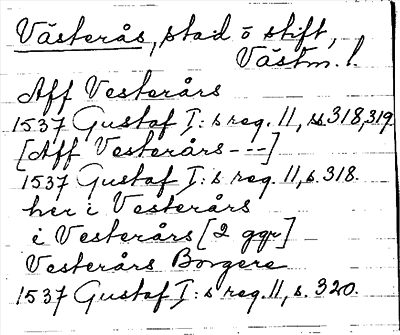 Västerås, stad o stift,
Västm. l.
Aff Vesterårs
1537 Gustaf I:s reg. 11, ss. 318, 319.
[Aff Vesterårs ---]
1537 Gustaf I:s reg. 11, s. 318.
her i Vesterårs
i Vesterårs [2 ggr]
Vesterårs Borgere
1537 Gustaf I:s reg. 11, s. 320.